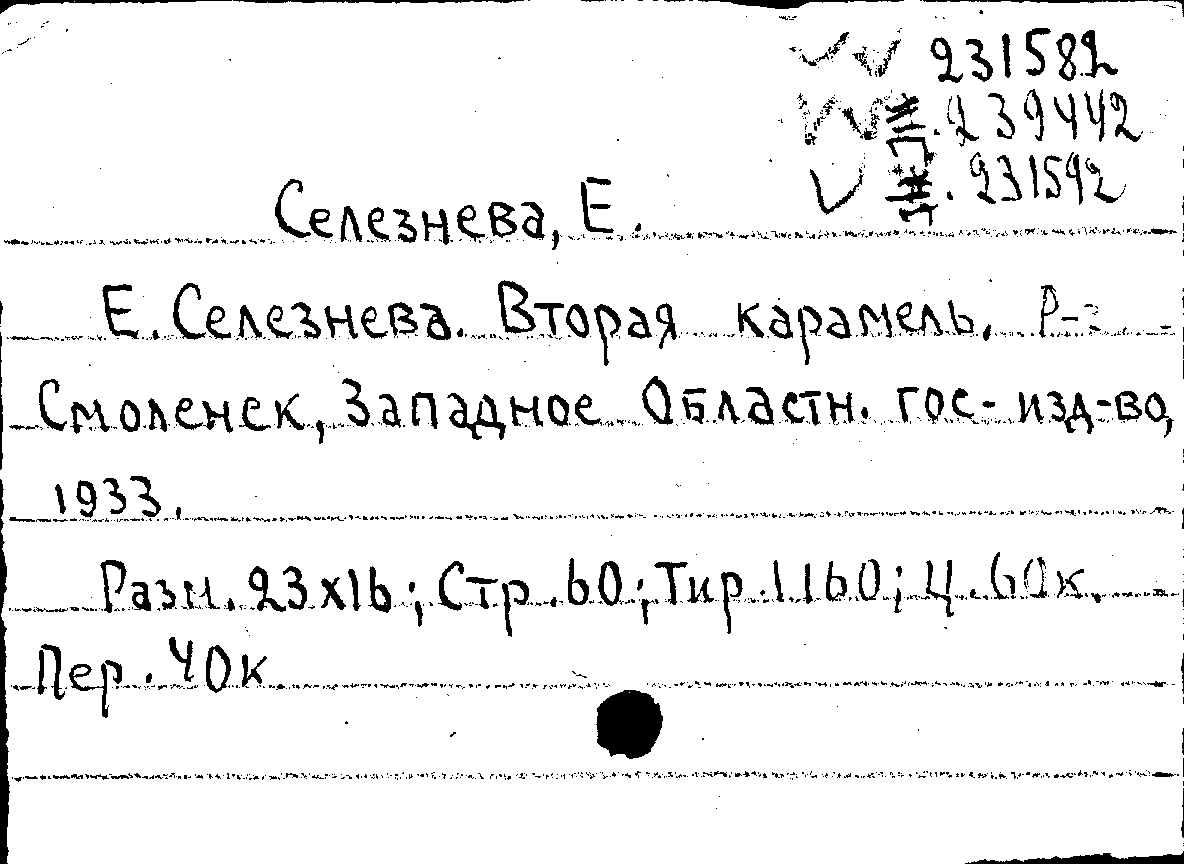 231582
239442
231592
Селезнева, Е.
Е. Селезнева. Вторая карамель.
Смоленск, Западное Областн. гос-изд-во,
1933.
Разм. 23х16; Стр. 60; Тир. 1160; Ц. 60к.
Пер. 40к